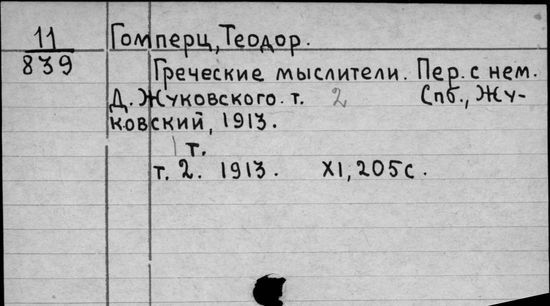 11 Гомперц, Теодор.
839 Греческие мыслители. Пер. с нем.
Д. Жуковского. т. 2 Спб., Жу-
ковский, 1913.
1 т.
т. 2. 1913. XI, 205 с.